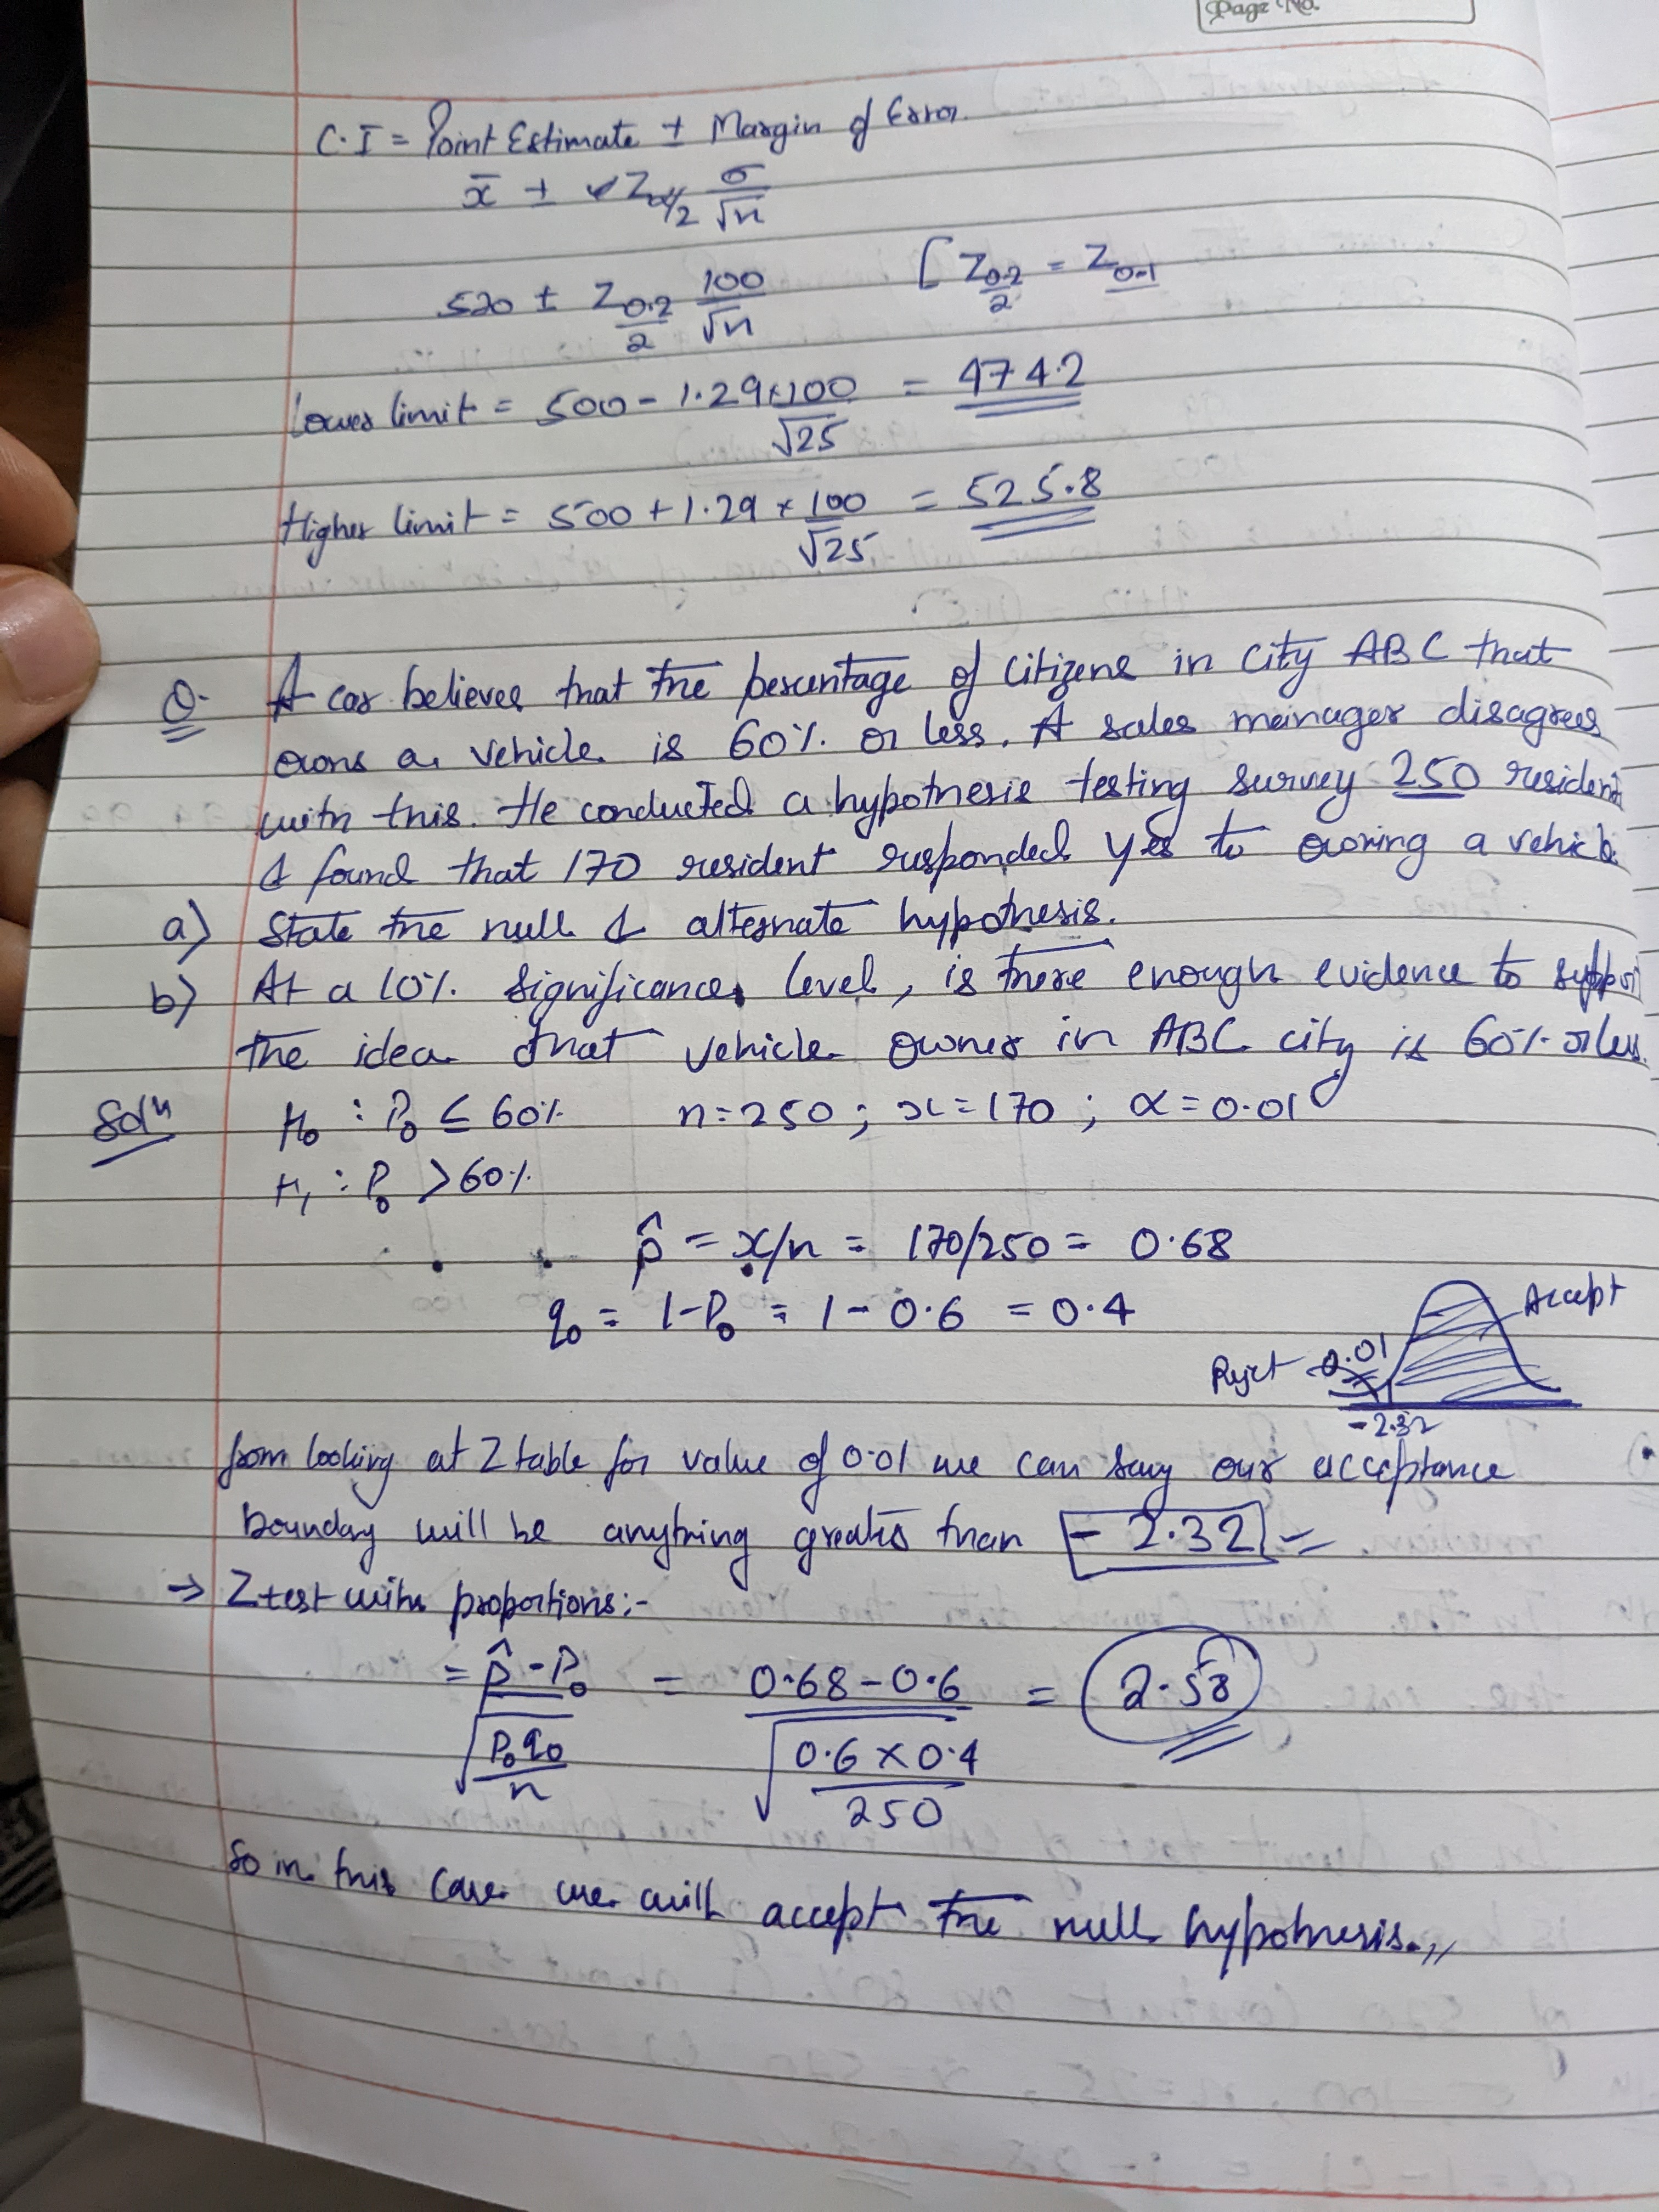 Page No.
C.I = Point Estimate ± Margin of Error.
x̄ ± Zα/2 σ/√n
520 ± Z0.2/2 100/√n [Z0.2/2 = Z0.1
Lower limit = 500 - 1.29×100/√25 = 474.2
Higher limit = 500 + 1.29 × 100/√25 = 525.8
Q. A car believes that the percentage of citizens in city ABC that
owns a vehicle is 60% or less. A sales meinager disagrees
with this. He conducted a hypothesis testing survey 250 resident
& found that 170 resident responded yes to owning a vehicle.
a) State the null & alternate hypothesis.
b) At a 10% significance level, is there enough evidence to suppor
the idea that vehicle owner in ABC city is 60% or less.
Solⁿ H₀ : P₀ ≤ 60% n=250 ; x=170 ; α=0.01
H₁ : P₀ > 60%
p̂ = x/n = 170/250 = 0.68
q₀ = 1-P₀ = 1-0.6 = 0.4
Accept
Reject 0.01
-2.32
from looking at Z table for value of 0.01 we can say our acceptance
bounday will be anything greater than - 2.32 =
→ Z test with proportions:-
= p̂ - P₀/√P₀q₀/n = 0.68-0.6/√0.6×0.4/250 = 2.58
So in this case we will accept the null hypothesis.,,